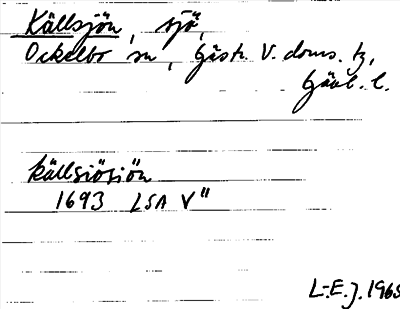 Källsjön, sjö,
Ockelbo sn, Gästr. V. doms. tg,
Gävl. l.
källsiösiön
1693 LSA V"
L-E.J. 1965